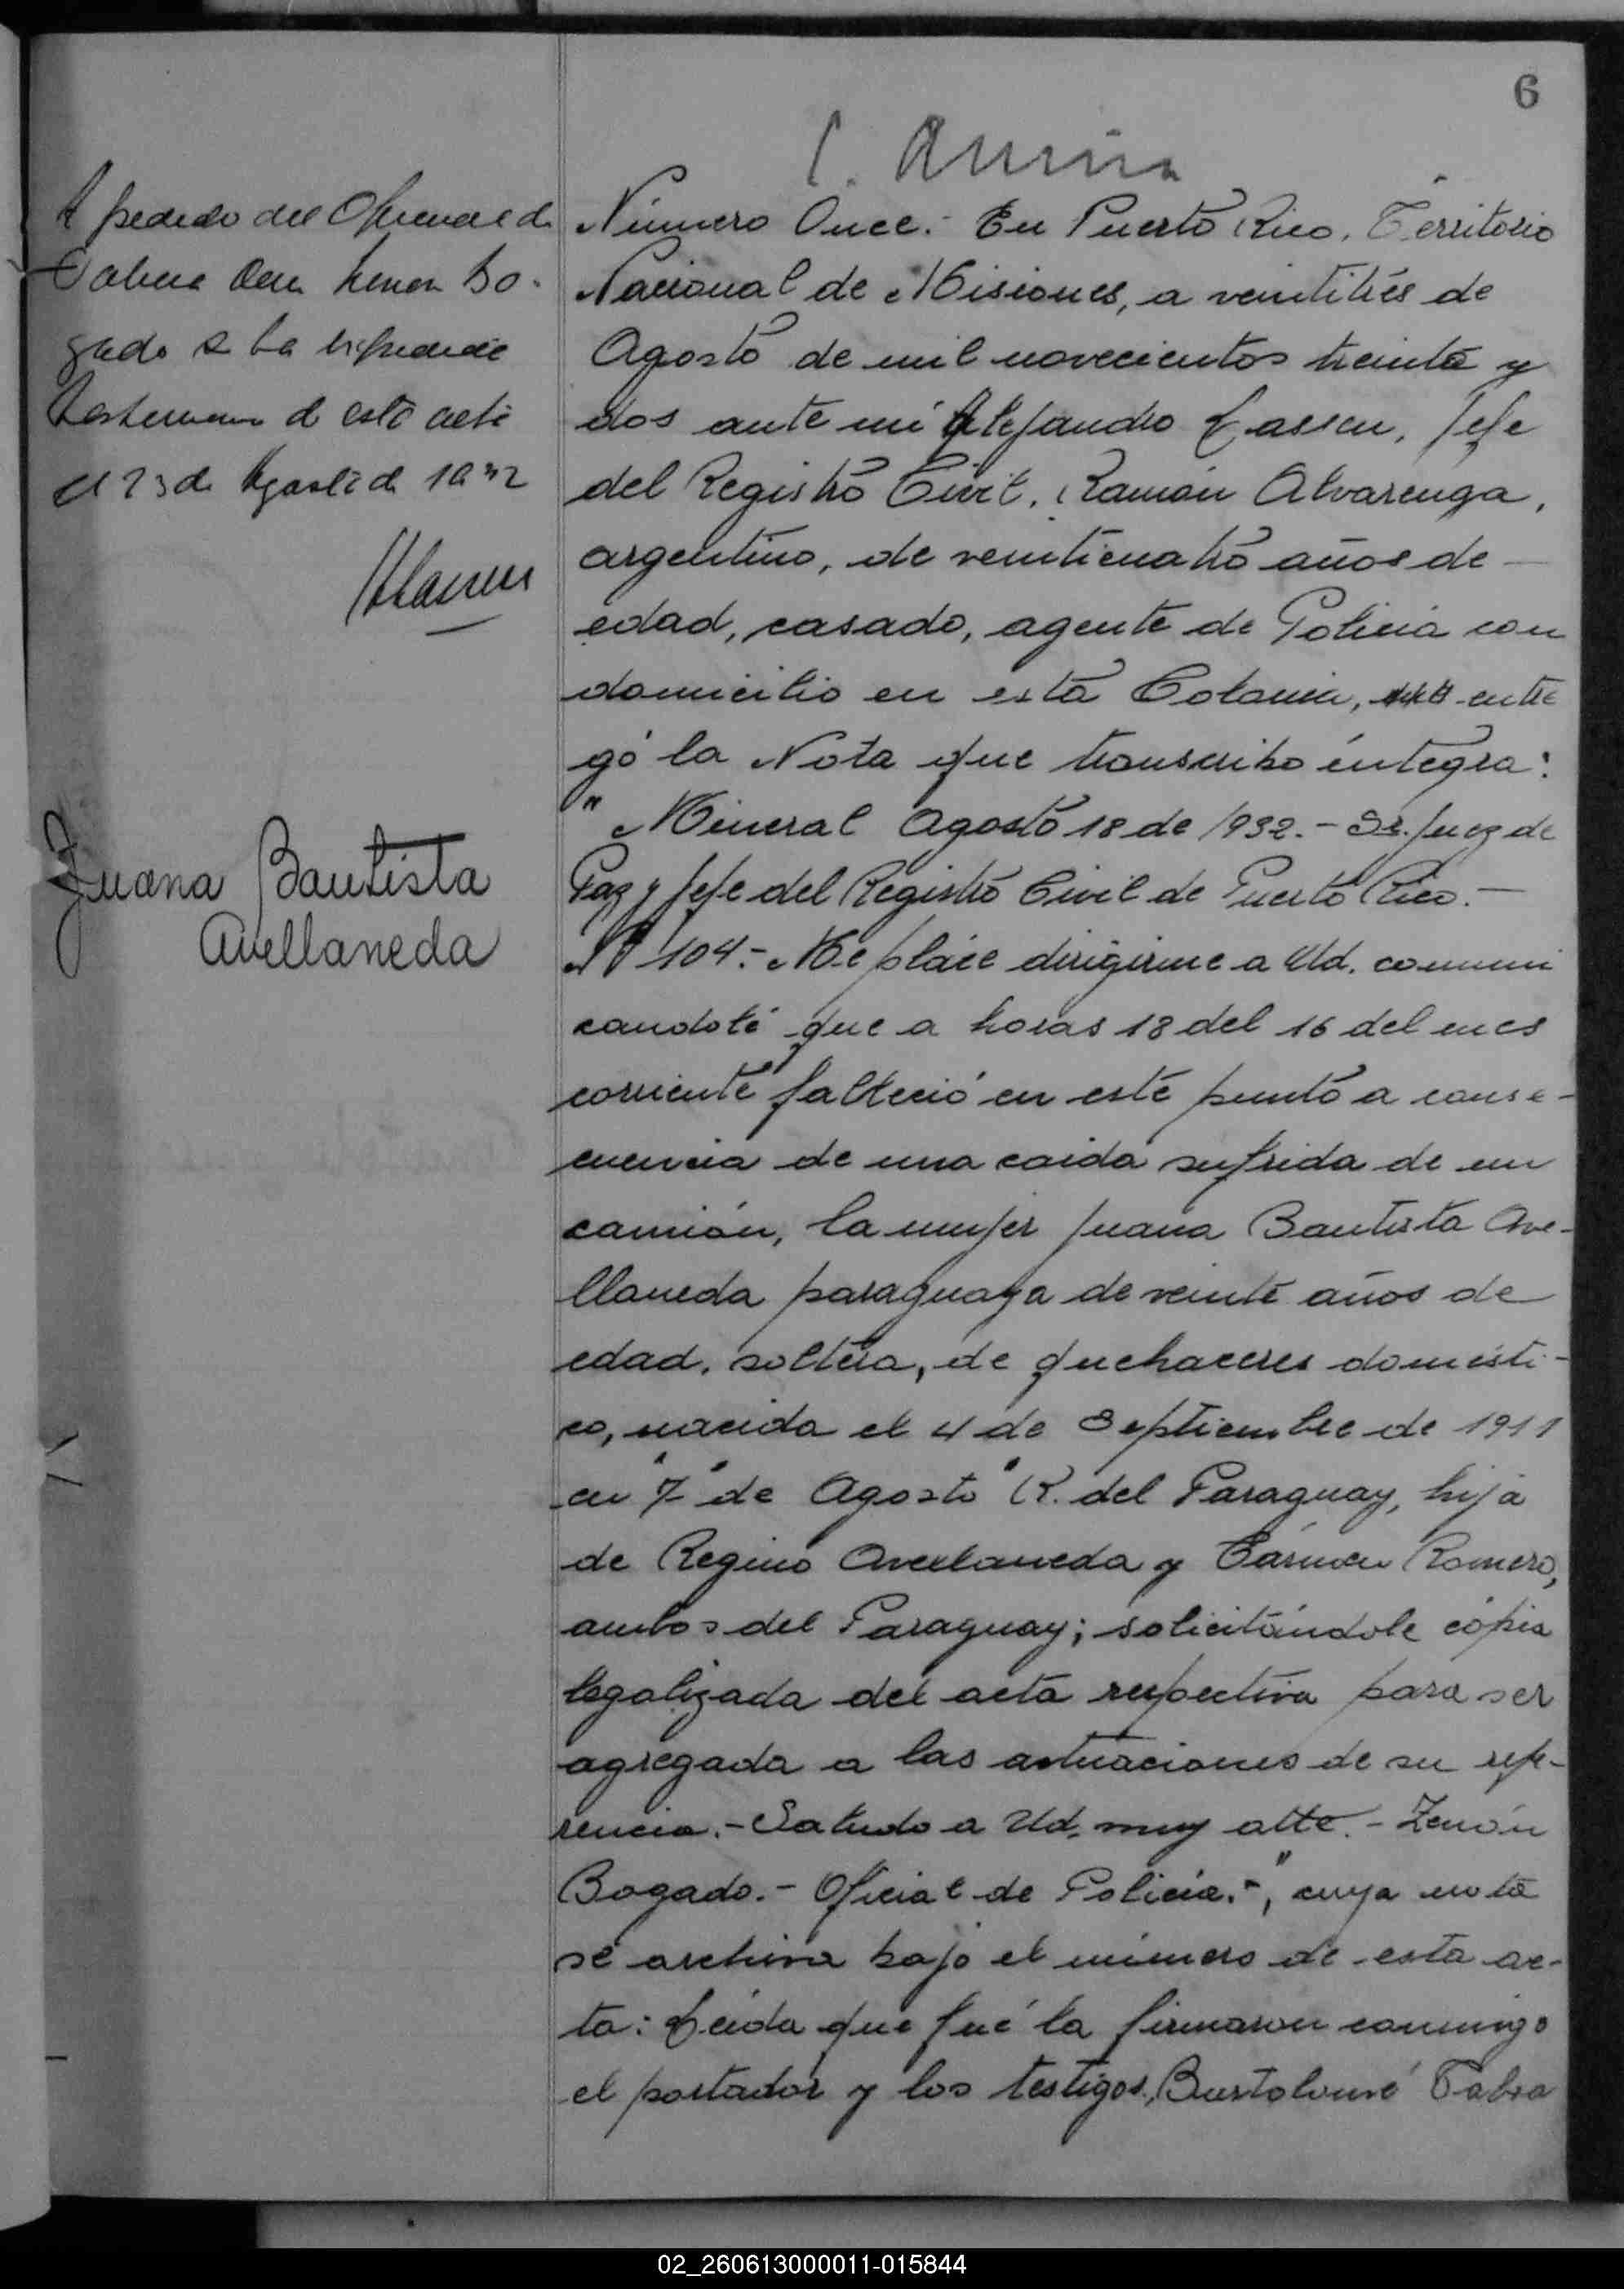 6
A pedido del Oficial de
Policia Don Zenon Bo-
gado se ha expedido
testimonio de este acta
el 23 de Agosto de 1932
Juana Bautista
Avellaneda
Número Once.- En Puerto Rico, Territorio
Nacional de Misiones, a veintitrés de
Agosto de mil novecientos treinta y
dos ante mi Alejandro Lassen, Jefe
del Registro Civil, Ramón Alvarenga,
argentino, de veinticuatro años de
edad, casado, agente de Policia con
domicilio en esta Colonia, entre
gó la Nota que transcribo íntegra:
" Mineral Agosto 18 de 1932.- Sr. Juez de
Paz y Jefe del Registro Civil de Puerto Rico.-
Nº 104.- Me place dirigirme a Ud. comuni
candole que a horas 18 del 16 del mes
corriente falleció en este punto a conse-
cuencia de una caida sufrida de un
camión, la mujer Juana Bautista Ave-
llaneda paraguaya de veinte años de
edad, soltera, de quehaceres domésti-
co, nacida el 4 de Septiembre de 1911
en "7 de Agosto" R. del Paraguay, hija
de Regino Avellaneda y Cármen Romero,
ambos del Paraguay; solicitándole cópia
legalizada del acta respectiva para ser
agregada a las actuaciones de su refe-
rencia.- Saludo a Ud. muy atte.- Zenón
Bogado.- Oficial de Policia.-", cuya nota
se archiva bajo el número de esta ac-
ta: Leida que fué la firmaron conmigo
el portador y los testigos, Bartolomé Fabra
02_260613000011-015844